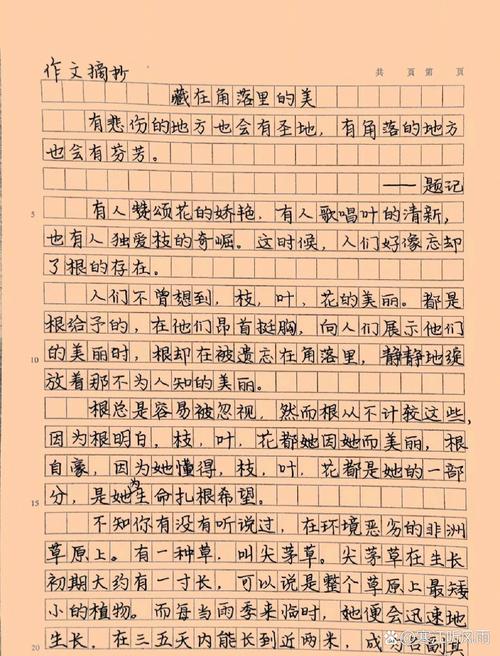 作文摘抄
共 页 第 页
藏在角落里的美
有悲伤的地方也会有圣地，有角落的地方
也会有芬芳。
——题记
5
有人赞颂花的娇艳，有人歌唱叶的清新，
也有人独爱枝的奇崛。这时候，人们好像忘却
了根的存在。
人们不曾想到，枝，叶，花的美丽。都是
根给予的，在他们昂首挺胸，向人们展示他们
10
的美丽时，根却在被遗忘在角落里，静静地绽
放着那不为人知的美丽。
根总是容易被忽视，然而根从不计较这些，
因为根明白，枝，叶，花都她因她而美丽，根
自豪，因为她懂得，枝，叶，花都是她的一部
15
分，是她为生命扎根希望。
不知你有没有听说过，在环境恶劣的非洲
草原上。有一种草，叫尖茅草。尖茅草在生长
初期大约有一寸长，可以说是整个草原上最矮
小的植物。而每当雨季来临时，她便会迅速地
20
生长，在三五天内能长到近两米，成为名副其
@寒江听风雨